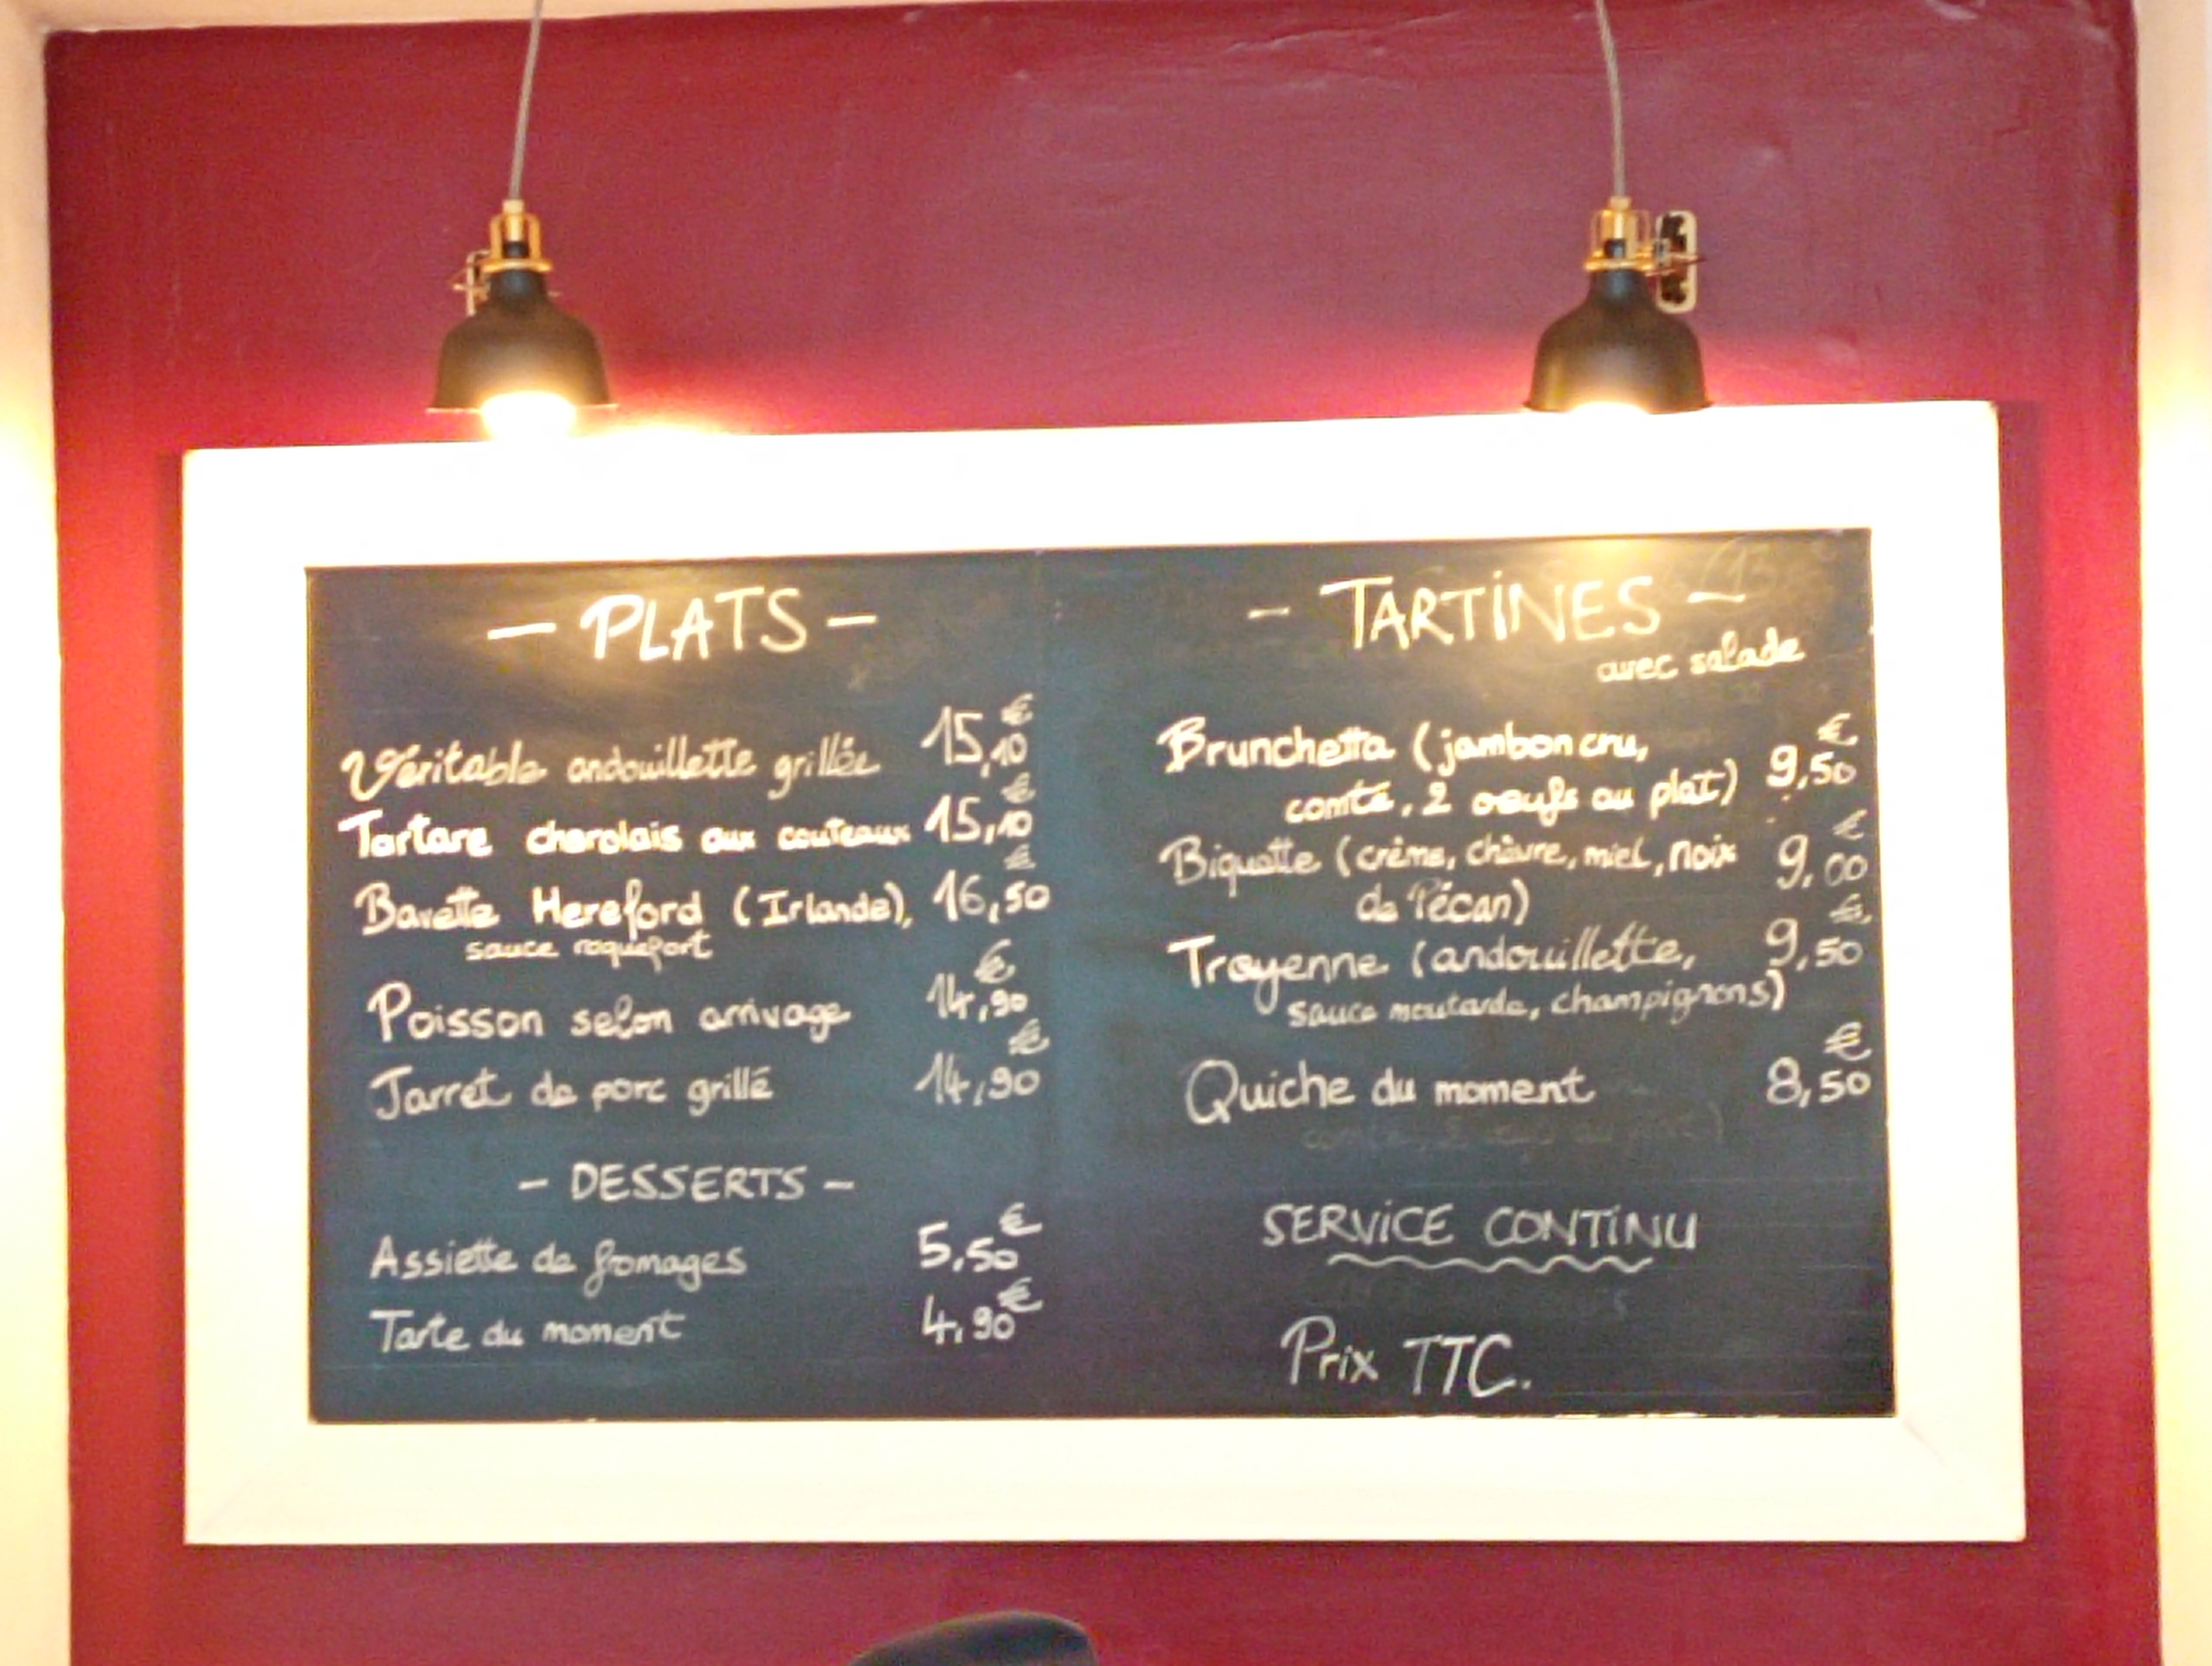 - PLATS -
Véritable andouillette grillée 15,10 €
Tartare charolais aux couteaux 15,10 €
Bavette Hereford (Irlande), 16,50 €
sauce roquefort
Poisson selon arrivage 14,90 €
Jarret de porc grillé 14,90 €
- DESSERTS -
Assiette de fromages 5,50 €
Tarte du moment 4,90 €
- TARTINES -
avec salade
Brunchetta (jambon cru, 9,50 €
comté, 2 oeufs au plat)
Biquette (crème, chèvre, miel, noix 9,00 €
de Pécan)
Troyenne (andouillette, 9,50 €
sauce moutarde, champignons)
Quiche du moment 8,50 €
SERVICE CONTINU
Prix TTC.